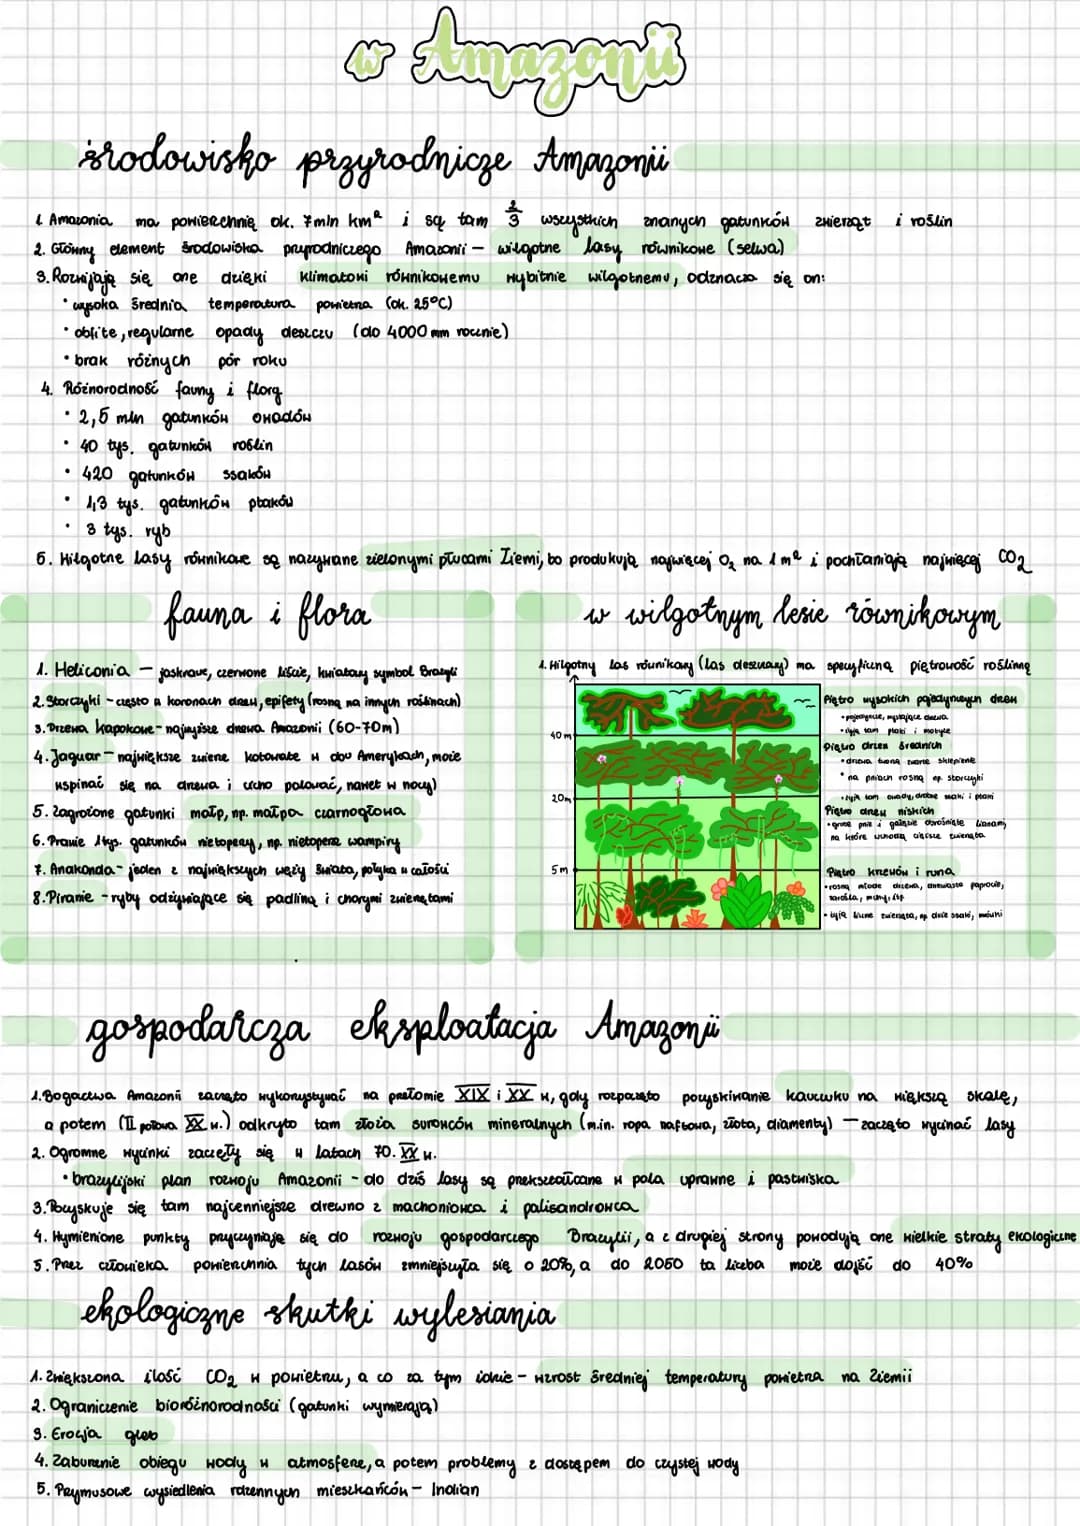 w Amazonii
środowisko przyrodnicze Amazonii
1. Amazonia ma powierzchnię ok. 7mln km² i są tam 2/3 wszystkich znanych gatunków zwierząt i roślin
2. Główny element środowiska przyrodniczego Amazonii – wilgotne lasy równikowe (selwa)
3. Rozwijają się one dzięki klimatowi równikowemu wybitnie wilgotnemu, odznacza się on:
• wysoka średnia temperatura powietrza (ok. 25°C)
• obfite, regularne opady deszczu (do 4000 mm rocznie)
• brak różnych pór roku
4. Różnorodność fauny i florą
• 2,5 mln gatunków owadów
• 40 tys. gatunków roślin
• 420 gatunków ssaków
• 1,3 tys. gatunków ptaków
• 3 tys. ryb
5. Wilgotne lasy równikowe są nazywane zielonymi płucami Ziemi, bo produkują najwięcej O₂ na 1 m² i pochłaniają najwięcej CO₂
fauna i flora
1. Heliconia – jaskrawe, czerwone liście, kwiatowy symbol Brazylii
2. Storczyki – często w koronach drzew, epifety (rosną na innych roślinach)
3. Drzewa kapokowe – najwyższe drzewa Amazonii (60-70m)
4. Jaguar – największe zwierzę kotowate w obu Amerykach, może
wspinać się na drzewa i cicho polować, nawet w nocy)
5. Zagrożone gatunki małp, np. małpa czarnogłowa
6. Prawie 1tys. gatunków nietoperzy, np. nietoperze wampiry
7. Anakonda – jeden z największych węży świata, połyka w całości
8. Piranie – ryby odżywiające się padliną i chorymi zwierzętami
w wilgotnym lesie równikowym
1. Wilgotny las równikowy (las deszczowy) ma specyficzną piętrowość roślinną
40 m
20m
5 m
Piętro wysokich pojedynczych drzew
• pojedyncze, wystające drzewa
• żyją tam ptaki i motyle
Piętro drzew średnich
• drzewa tworzą zwarte sklepienie
• na pniach rosną np. storczyki
• żyją tam owady, drobne ssaki i ptaki
Piętro drzew niskich
• grube pnie i gałęzie obrośnięte lianami,
na które wchodzą mniejsze zwierzęta
Piętro krzewów i runa
• rosną młode drzewa, drzewiaste paprocie,
• żyją liczne zwierzęta, np. duże ssaki, mrówki
gospodarcza eksploatacja Amazonii
1. Bogactwa Amazonii zaczęto wykorzystywać na przełomie XIX i XX w, gdy rozpoczęto pozyskiwanie kauczuku na większą skalę,
a potem (II połowa XX w.) odkryto tam złoża surowców mineralnych (m.in. ropa naftowa, złota, diamenty) – zaczęto wycinać lasy
2. Ogromne wycinki zaczęły się w latach 70. XX w.
• brazylijski plan rozwoju Amazonii – do dziś lasy są przekształcane w pola uprawne i pastwiska
3. Pozyskuje się tam najcenniejsze drewno z machoniowca i palisandrowca
4. Wymienione punkty przyczyniają się do rozwoju gospodarczego Brazylii, a z drugiej strony powodują one wielkie straty ekologiczne
5. Przez człowieka powierzchnia tych lasów zmniejszyła się o 20%, a do 2050 ta liczba może dojść do 40%
ekologiczne skutki wylesiania
1. Zwiększona ilość CO₂ w powietrzu, a co za tym idzie – wzrost średniej temperatury powietrza na Ziemii
2. Ograniczenie bioróżnorodności (gatunki wymierają)
3. Erozja gleb
4. Zaburzenie obiegu wody w atmosferze, a potem problemy z dostępem do czystej wody
5. Przymusowe wysiedlenia rdzennych mieszkańców – Indian